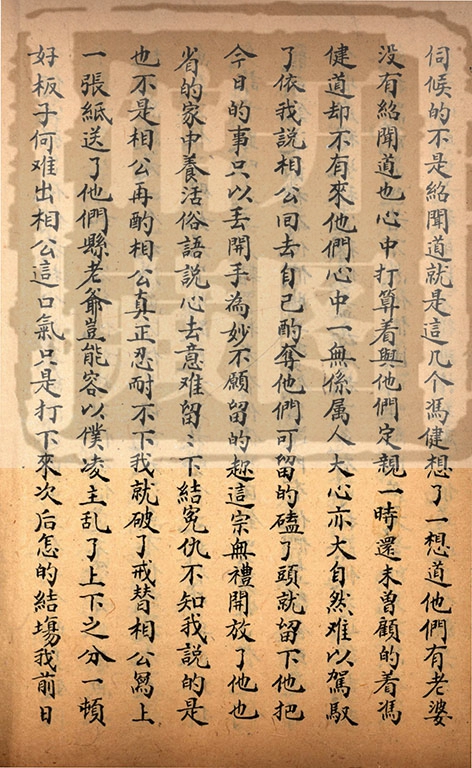 伺候的不是紹聞道就是這几个馮健想了一想道他們有老婆
没有紹聞道也心中打算着與他們定親一時還未曾顧的着馮
健道却不有來他們心中一無係属人大心亦大自然难以駕馭
了依我説相公囘去自己酌奪他們可留的磕了頭就留下他把
今日的事只以丟開手為妙不願留的趂這宗無禮開放了他也
省的家中養活俗語説心去意难留〻下結寃仇不知我説的是
也不是相公再酌相公真正忍耐不下我就破了戒替相公寫上
一張紙送了他們縣老爺豈能容以僕凌主乱了上下之分一頓
好板子何难出相公這口氣只是打下來次后怎的結塲我前日